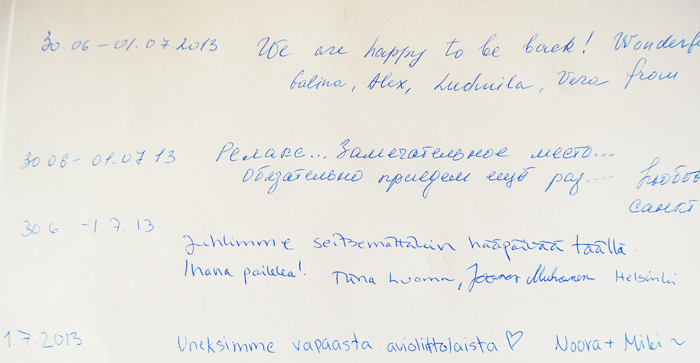 30.06 – 01.07.2013 We are happy to be back! Wonderf
Galina, Alex, Ludmila, Vera from
30.06 – 01.07 13 Релакс... Замечательное место...
Обязательно приедем ещё раз....
Санкт
30.6. – 1.7.13
Juhlimme seitsemättäkin hääpäivää täällä.
Ihana paikka! Tiina Luoma, Joonas Helsinki
1.7.2013 Uneksimme vapaasta avioliittolaista ♡ Noora + Miki ~